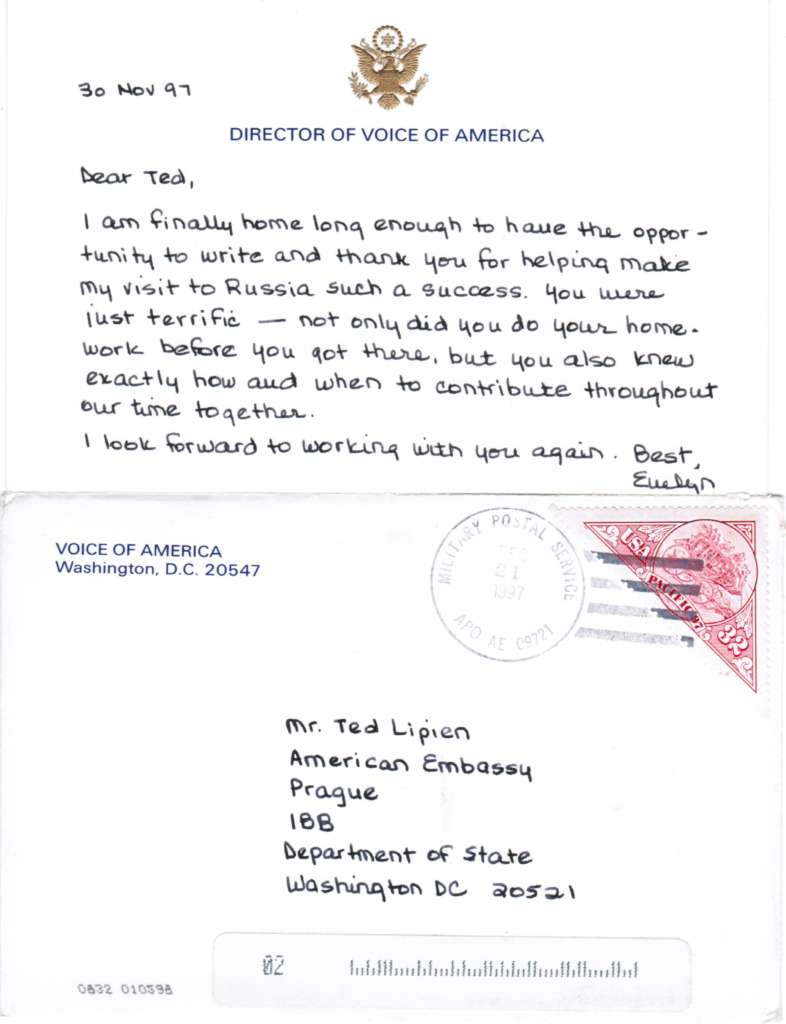 30 Nov 97
DIRECTOR OF VOICE OF AMERICA
Dear Ted,
I am finally home long enough to have the oppor-
tunity to write and thank you for helping make
my visit to Russia such a success. You were
just terrific — not only did you do your home-
work before you got there, but you also knew
exactly how and when to contribute throughout
our time together.
I look forward to working with you again. Best,
Evelyn
VOICE OF AMERICA
Washington, D.C. 20547
MILITARY POSTAL SERVICE
21
1997
APO AE 09721
USA
PACIFIC 97
32
Mr. Ted Lipien
American Embassy
Prague
IBB
Department of State
Washington DC 20521
02
0832 010598